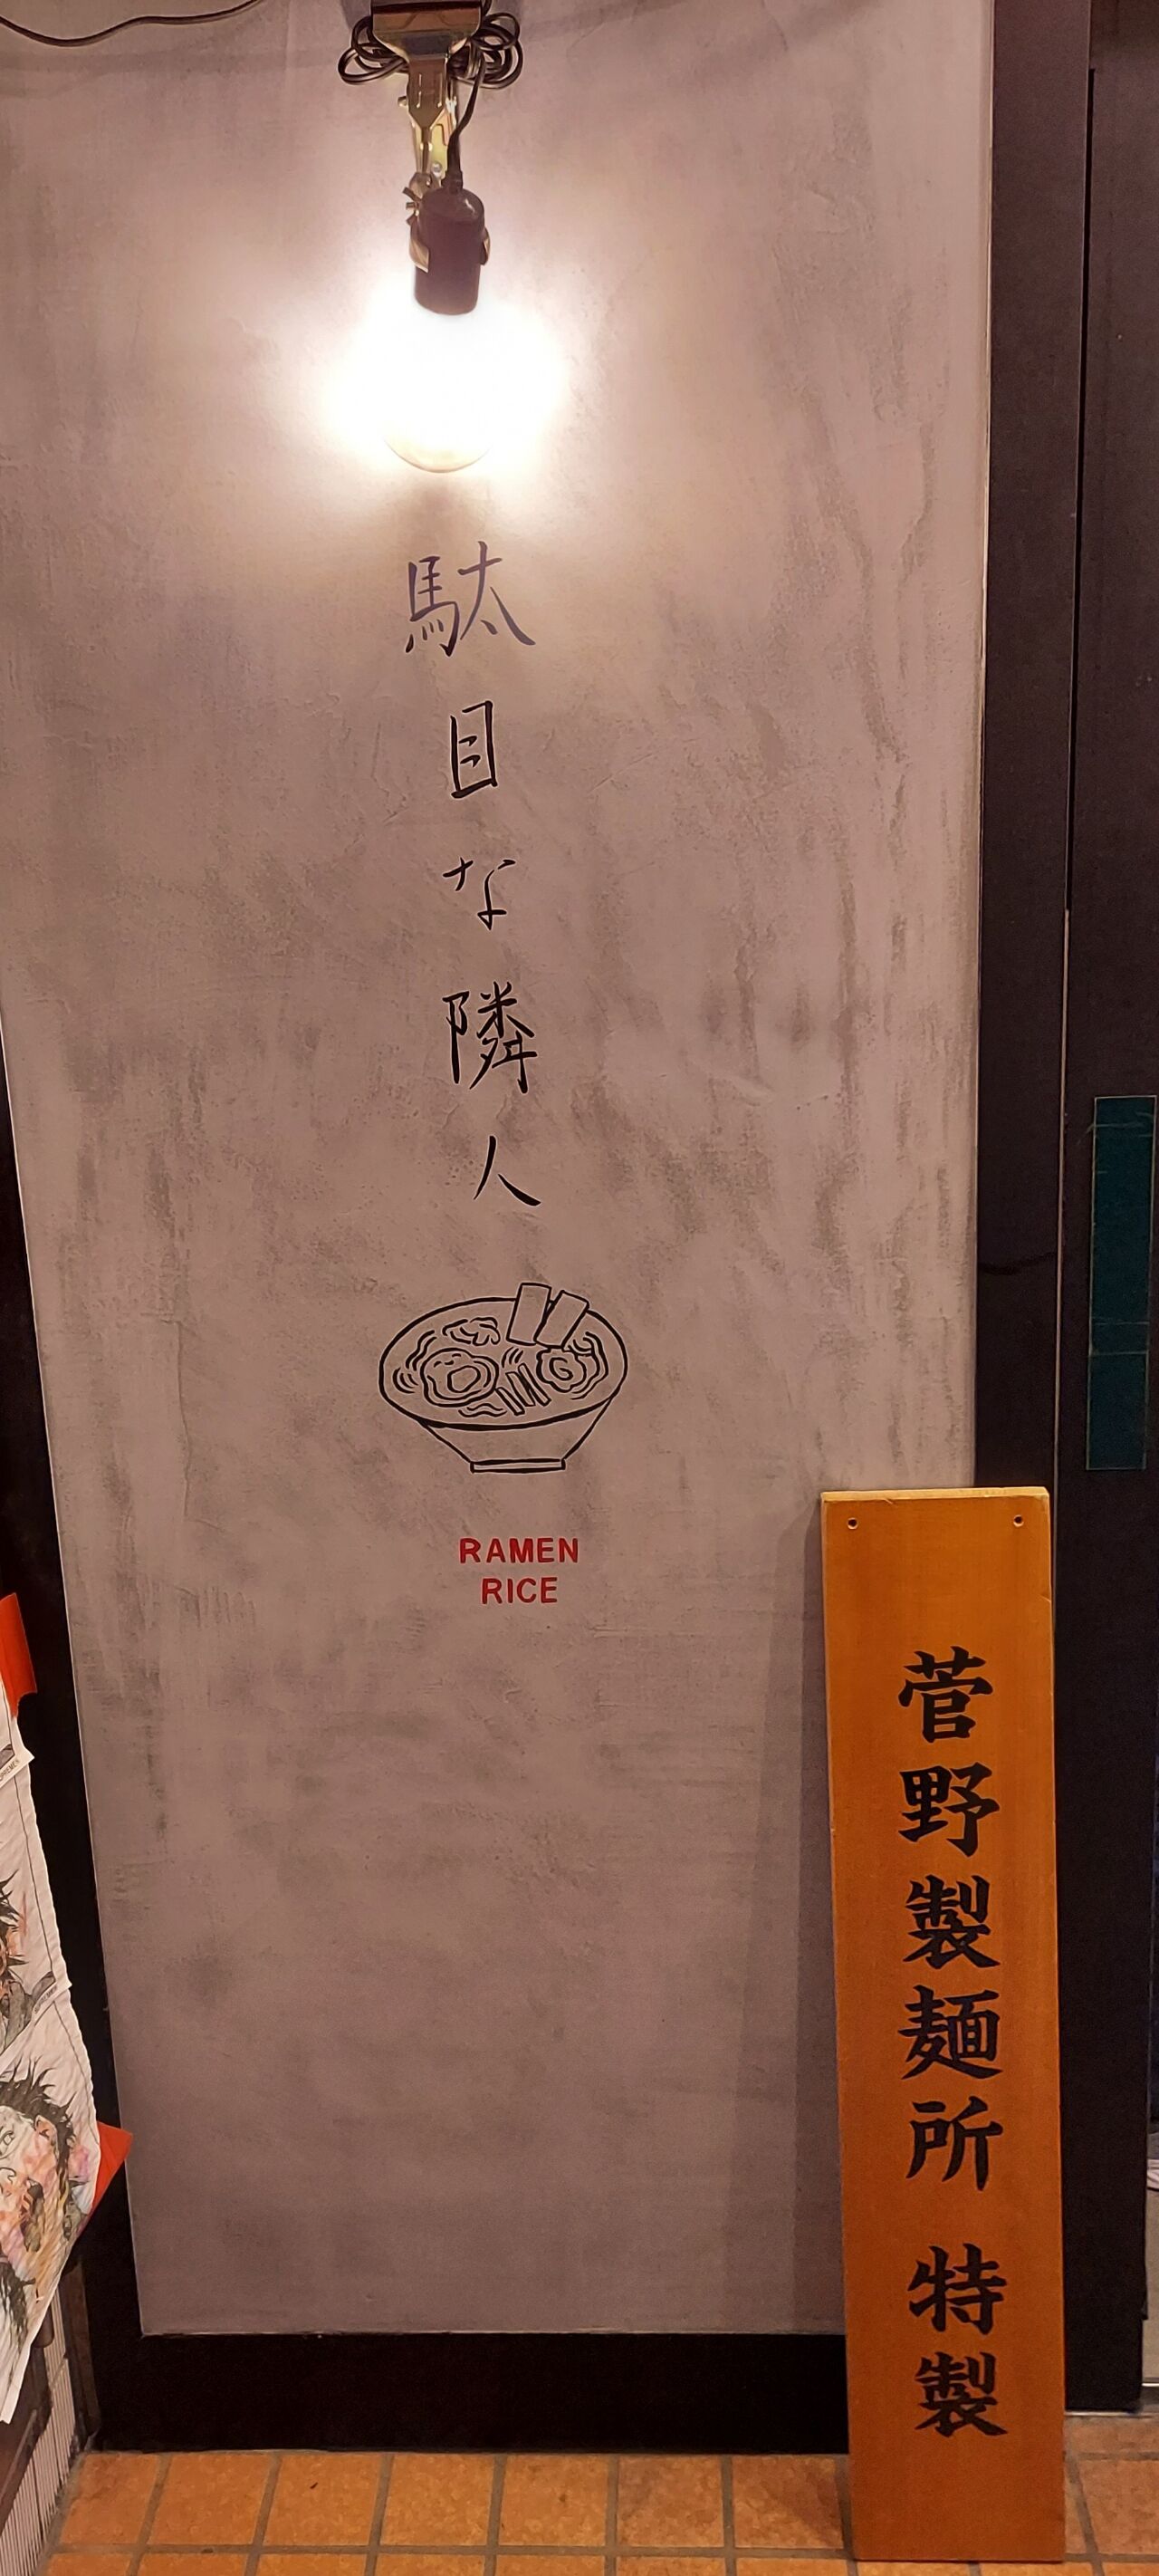 駄目な隣人
RAMEN
RICE
菅野製麺所 特製